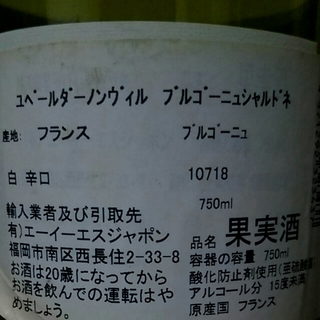 ﾕﾍﾞｰﾙﾀﾞｰﾉﾝｳﾞｨﾙ ﾌﾞﾙｺﾞｰﾆｭｼｬﾙﾄﾞﾈ
産地: フランス ﾌﾞﾙｺﾞｰﾆｭ
白 辛口 10718
750ml
輸入業者及び引取先
有)エーイーエスジャポン
福岡市南区西長住2-33-8
お酒は20歳になってから
お酒を飲んでの運転はや
めましょう。
品名 果実酒
容器の容量 750ml
酸化防止剤使用(亜硫酸
アルコール分 15度未満
原産国 フランス